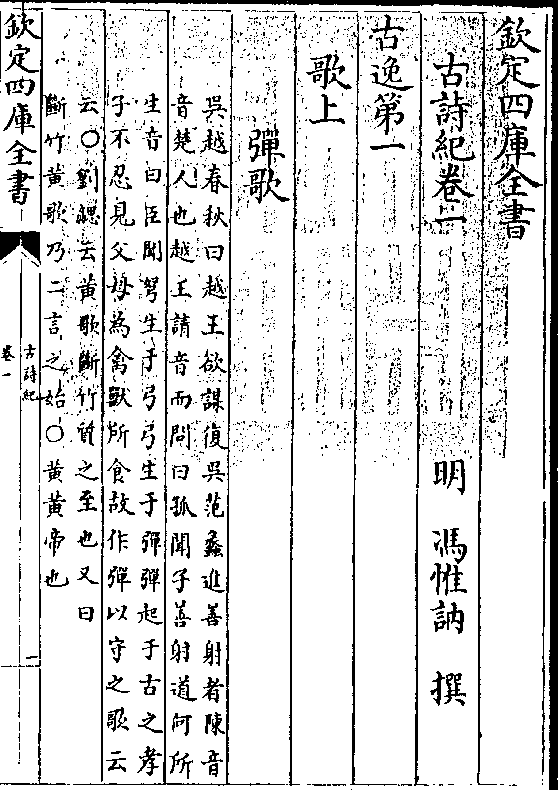 欽定四庫全書
古詩紀卷一
明 馮惟訥 撰
古逸第一
歌上
彈歌
吳越春秋曰越王欲謀復吳范蠡進善射者陳音
音楚人也越王請音而問曰孤聞子善射道何所
生音曰臣聞弩生于弓弓生于彈彈起于古之孝
子不忍見父母為禽獸所食故作彈以守之歌云
云○劉勰云黄歌斷竹質之至也又曰
斷竹黄歌乃二言之始○黄黄帝也
欽定四庫全書
古詩紀
卷一
一